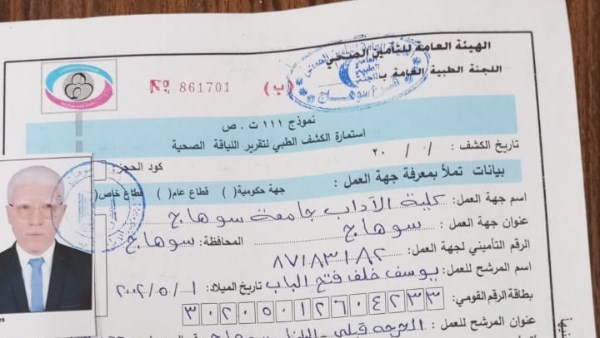 الهيئة العامة للتأمين الصحي
اللجنة الطبية العامة بـ
№ 861701 (ب)
نموذج ١١١ ت . ص
استمارة الكشف الطبي لتقرير اللياقة الصحية
تاريخ الكشف : / / ٢٠
كود الحجز:
بيانات تملأ بمعرفة جهة العمل : جهة حكومية( ) قطاع عام( ) قطاع خاص( )
اسم جهة العمل : كلية الآداب جامعة سوهاج
عنوان جهة العمل : سوهاج المحافظة: سوهاج
الرقم التأميني لجهة العمل : ٨٧١٨٣١٨٢
اسم المرشح للعمل: يوسف خلف فتح الباب تاريخ الميلاد: ٢٠٠٢/٥/١
بطاقة الرقم القومي: ٣٠٢٠٥٠١٢٦٠٤٢٣٣
عنوان المرشح للعمل: قبلي